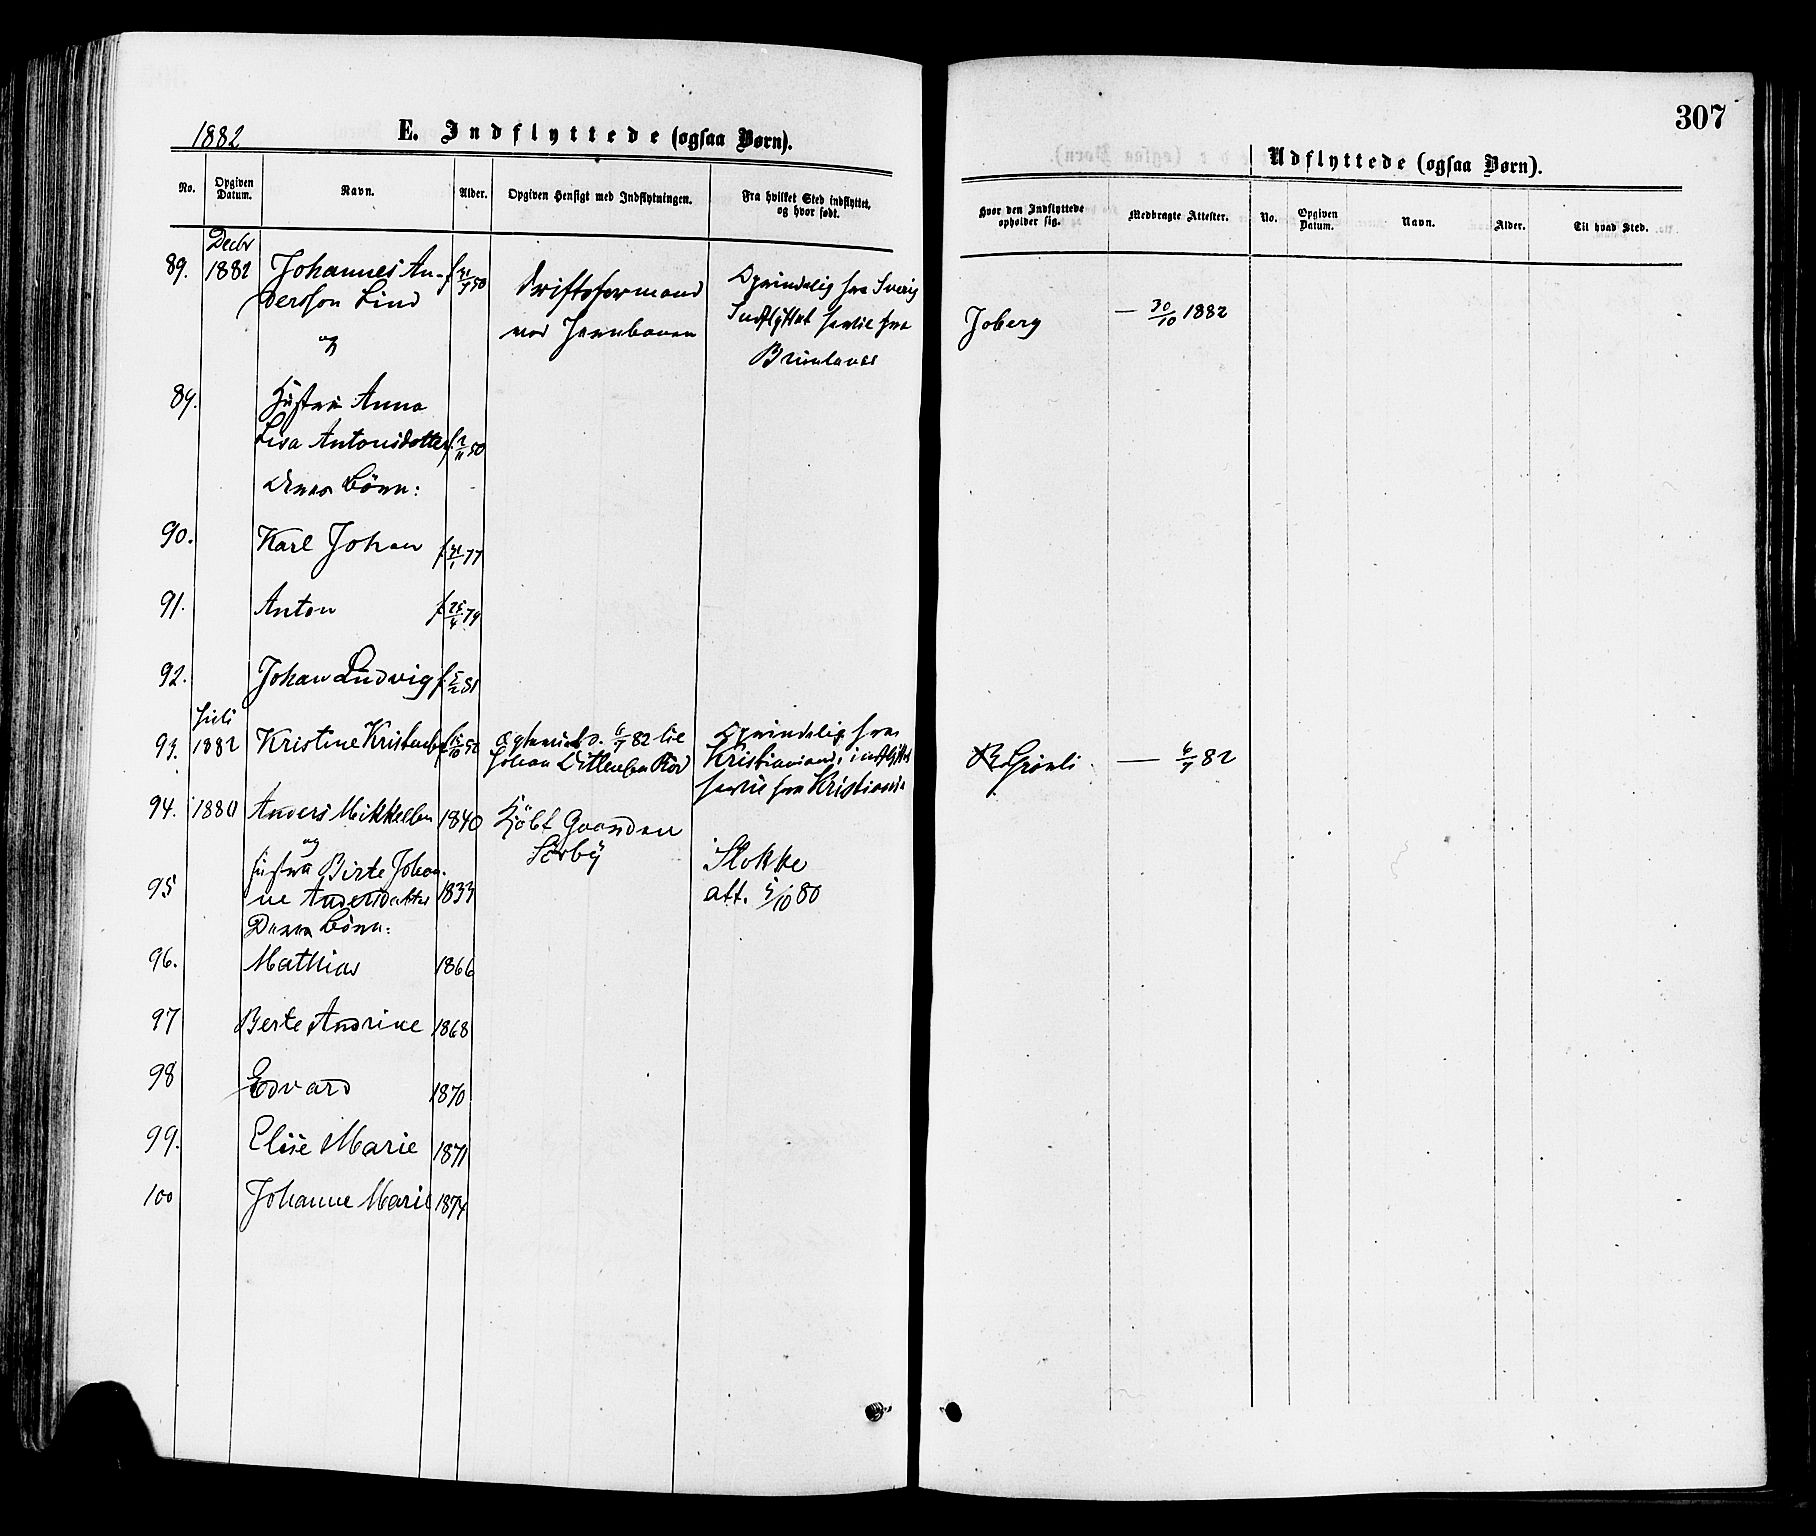 1882
E. Indflyttede (ogsaa Børn).
No.
Opgiven Datum.
Navn.
Alder.
Opgiven Hensigt med Indflytningen.
Fra hvilket Sted indflyttet, og hvor født.
Decbr
89. 1882 Johannes An-
dersson Lind
f 31/7 50
og
Driftsformand
ved Jernbanen
Oprindelig fra Sverig
Indflyttet hertil fra
Brunlanes
89. Hustru Anna
Lisa Antonisdotter f 2/11 50
deres Börn:
90. Karl Johan f 31/1 77
91. Anton f 25/4 79
92. Johan Ludvig f 5/2 81
Juli
93. 1882 Kristine f 15/10 52
Ægteviet d. 6/7 82 til
Johan Dittlevsen Röd
Oprindelig fra
Kristiansand, indflyttet
hertil fra Kristiania
94. 1880 Anders Mikkelsen 1840
Kjöbt Gaarden
Sörby
og
95 Hustru Birte Johan-
ne Andersdatter 1833
Stokke
att. 5/10 80
Deres Börn:
96. Mathias 1866
97 Berte Andrine 1868
98 Edvard 1870
99. Elise Marie 1871
100 Johanne Marie 1874
307
Udflyttede (ogsaa Børn).
Hvor den Indflyttede opholder sig.
Medbragte Attester.
No.
Opgiven Datum.
Navn.
Alder.
Til hvad Sted.
Joberg — 30/10 1882
Grönli — 6/7 82